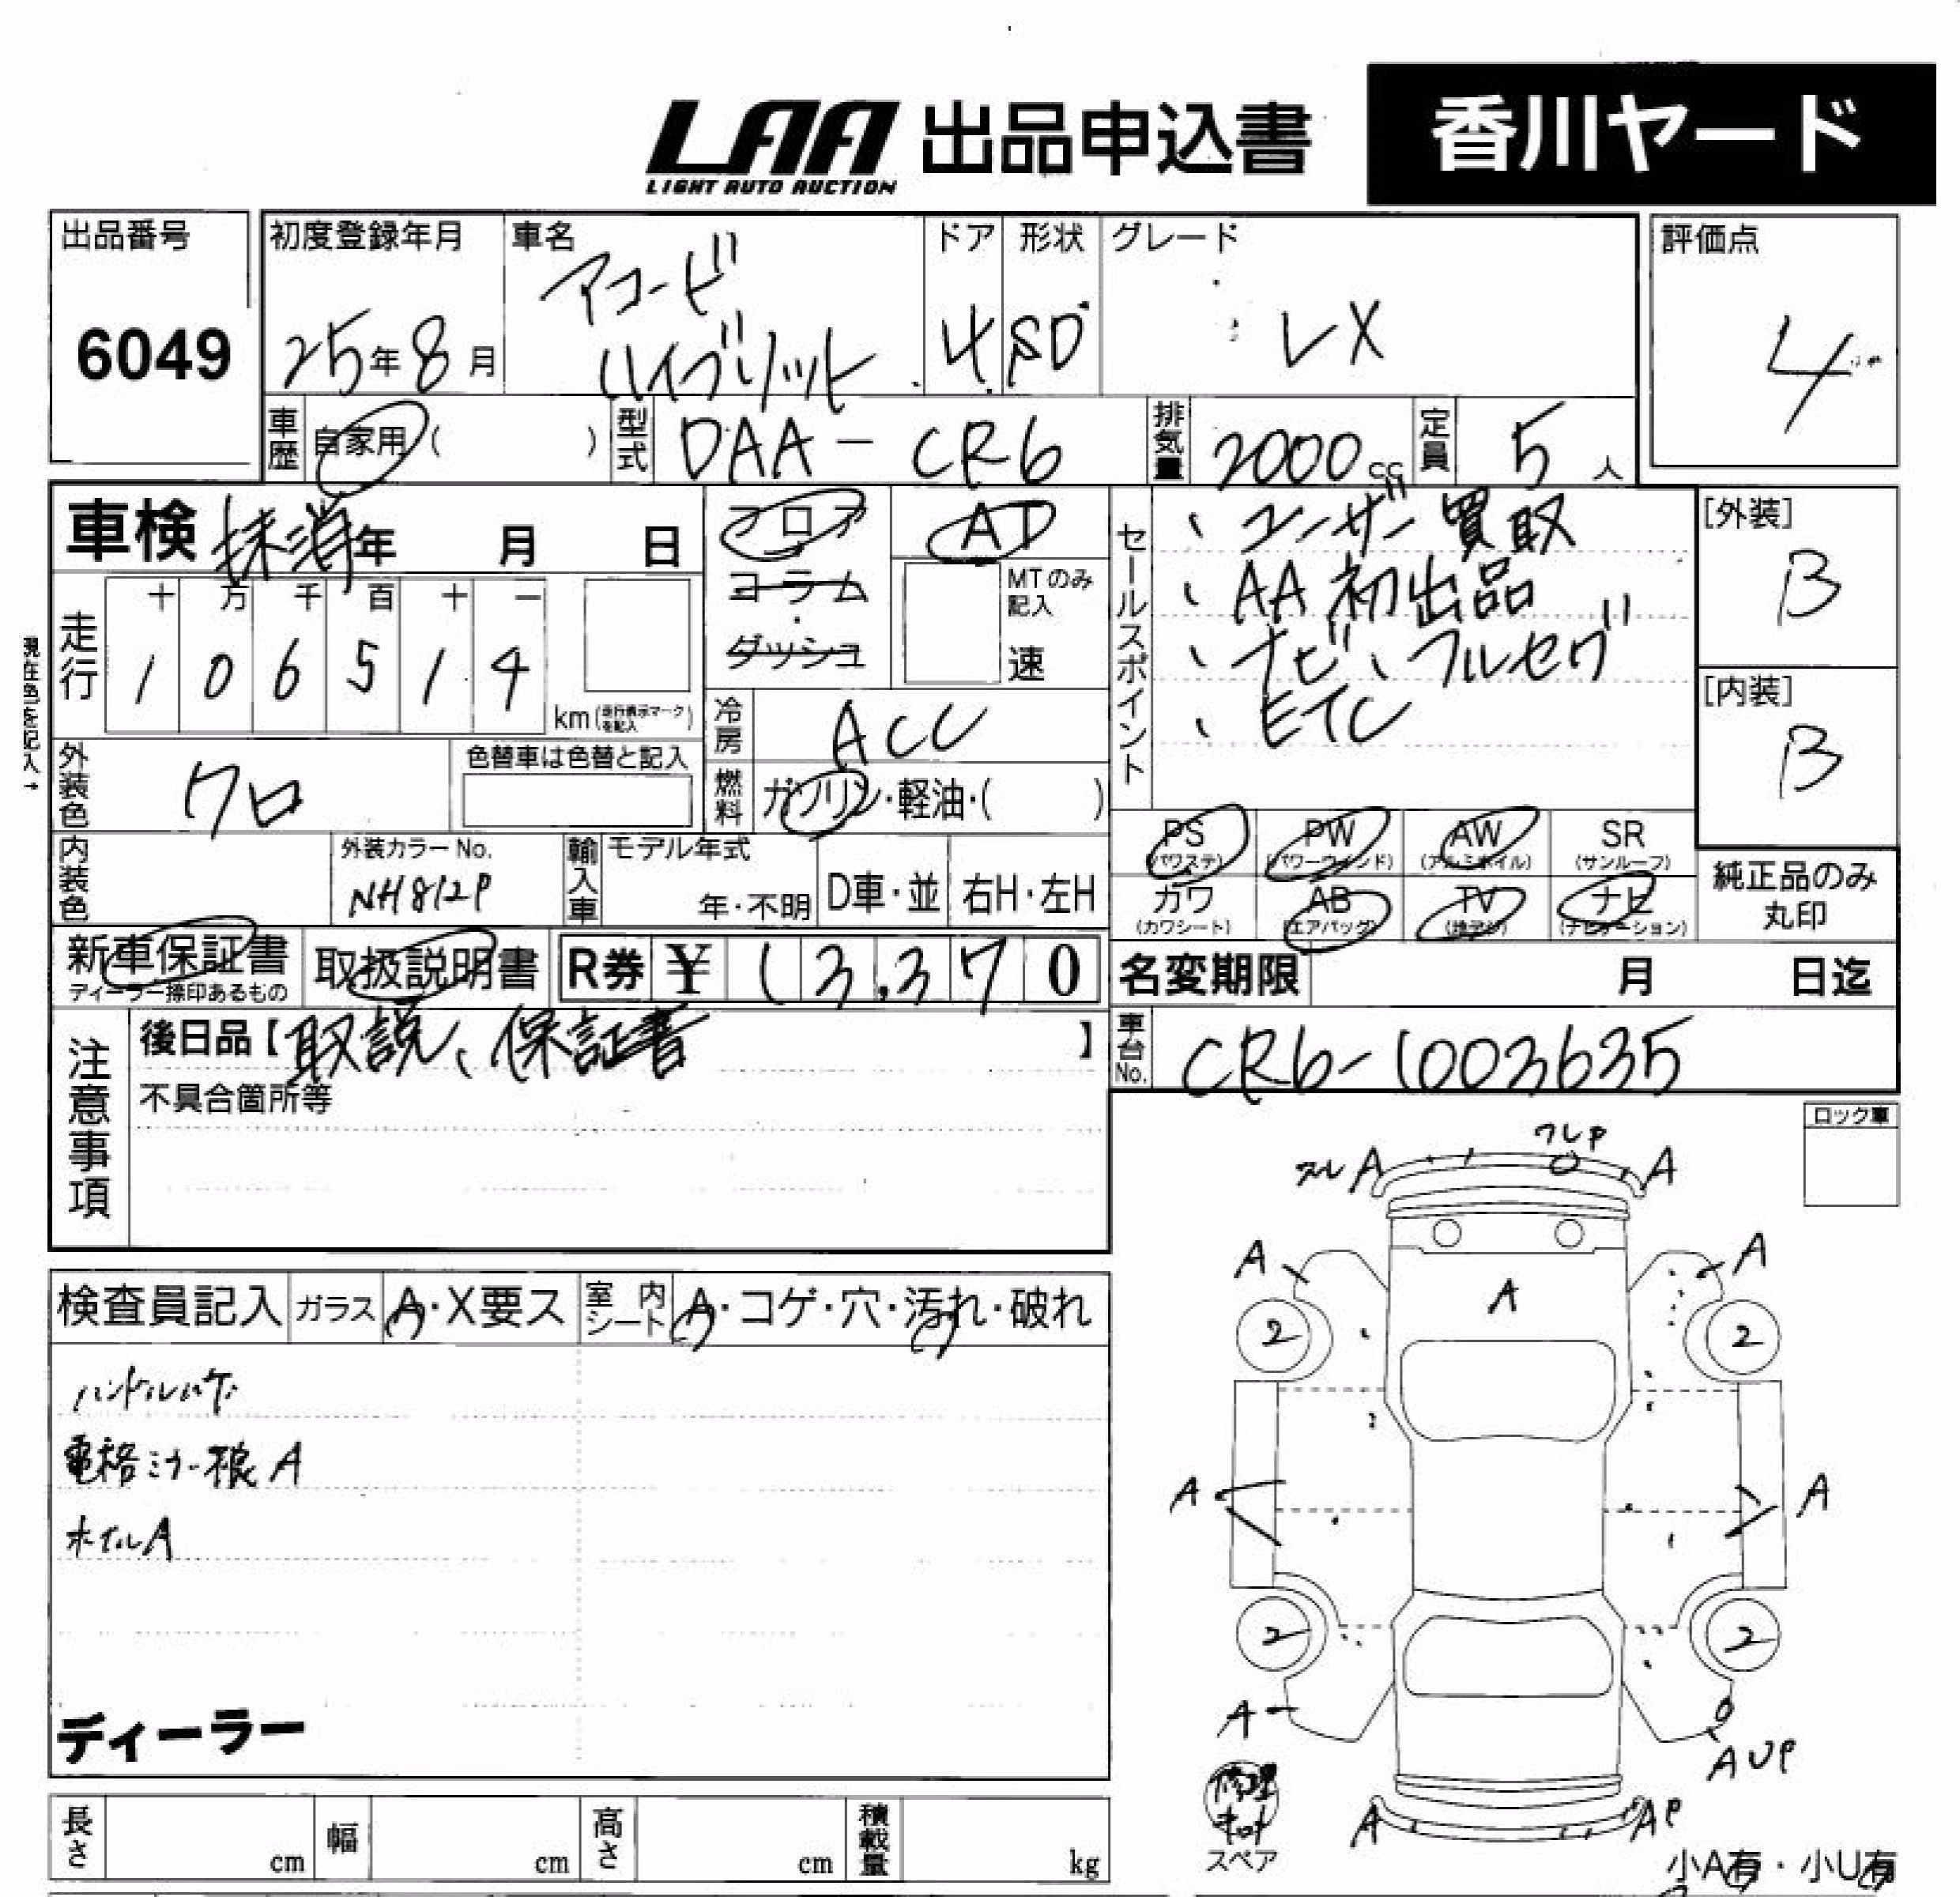 LAA 出品申込書 香川ヤード
LIGHT AUTO AUCTION
出品番号 初度登録年月 車名 ドア 形状 グレード 評価点
アコード
6049 25年8月 ハイブリット 4 SD LX 4
車歴 自家用 ( ) 型式 DAA-CR6 排気量 2000cc 定員 5人
車検 抹消 年 月 日 フロア AT
コラム・ダッシュ MTのみ記入 速
走行 十 万 千 百 十 一
1 0 6 5 1 4 km(走行表示マークを記入)
現在色を記入→
冷房 ACC
燃料 ガソリン・軽油・( )
セールスポイント
、ユーザー買取
、AA初出品
、ナビ、フルセグ
、ETC
[外装] B
[内装] B
外装色 クロ 色替車は色替と記入
内装色 外装カラーNo. NH812P 輸入車 モデル年式 年・不明 D車・並 右H・左H
PS (パワステ) PW (パワーウィンド) AW (アルミホイル) SR (サンルーフ)
カワ (カワシート) AB (エアバック) TV (地デジ) ナビ (ナビゲーション)
純正品のみ丸印
新車保証書 ディーラー捺印あるもの 取扱説明書 R券 ¥ 13,370
名変期限 月 日迄
車台No. CR6-1003635
注意事項
後日品【取説、保証書】
不具合箇所等
ロック車
検査員記入 ガラス A・X要ス 室内シート A・コゲ・穴・汚れ・破れ
ハンドルハゲ
電格ミラー根A
ホイルA
ディーラー
ワレP
スレA A
A A
A
2 2
A A
2 2
A
AUP
A AP
修理キット
スペア
小A有・小U有
長さ cm 幅 cm 高さ cm 積載量 kg